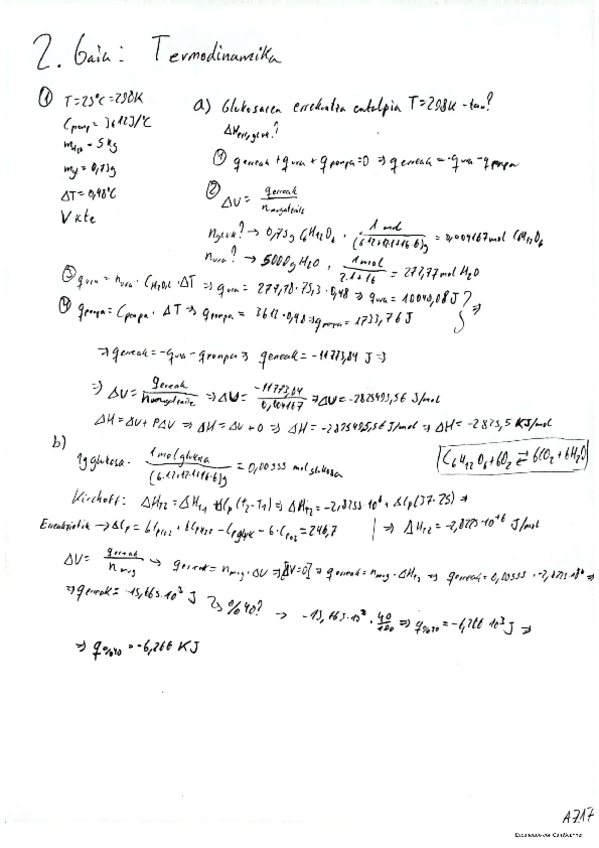 2. Gaia: Termodinamika
① T=25°C=298K
Cpomp = 3612J/°C
mH2O = 5kg
mg = 0,75g
ΔT = 0,48°C
V kte
a) Glukosaren errekuntza entalpia T=298K-tan?
① qerreak + qura + qponpa = 0 ⇒ qerreak = -qura - qponpa
② ΔU = qerreak / nmugatzaile
ngluk? → 0,75g C6H12O6 · 1 mol / (6·12+12·1+16·6)g = 0,004167 mol C6H12O6
nura? → 5000g H2O · 1 mol / 2·1+16 = 277,77 mol H2O
③ qura = nura · CH2O,l · ΔT ⇒ qura = 277,78 · 75,3 · 0,48 ⇒ qura = 10040,08 J
④ qponpa = Cponpa · ΔT ⇒ qponpa = 3612 · 0,48 ⇒ qponpa = 1733,76 J ⇒
⇒ qerreak = -qura - qponpa ⇒ qerreak = -11773,84 J ⇒
⇒ ΔU = qerreak / nmugatzaile ⇒ ΔU = -11773,84 / 0,004167 ⇒ ΔU = -2825495,56 J/mol
ΔH = ΔU + PΔV ⇒ ΔH = ΔU + 0 ⇒ ΔH = -2825495,56 J/mol ⇒ ΔH = -2825,5 KJ/mol
b)
C6H12O6 + 6O2 ⇄ 6CO2 + 6H2O
1g glukosa · 1 mol glukosa / (6·12+12·1+16·6)g = 0,00555 mol glukosa
Kirchoff: ΔHT2 = ΔHT1 + ΔCp (T2-T1) ⇒ ΔHT2 = -2,8255·10⁶ + ΔCp (37-25) ⇒
→ ΔCp = 6CpCO2 + 6CpH2O - Cpgluk - 6·CpO2 = 246,7 | ⇒ ΔHT2 = -2,8225·10⁺⁶ J/mol
ΔU = qerreak / nmug → qerreak = nmug · ΔU ⇒ [ΔV=0] ⇒ qerreak = nmug · ΔHT2 ⇒ qerreak = 0,00555 · -2,8225·10⁶ ⇒
⇒ qerreak = -15,665·10³ J → %40? → -15,665·10³ · 40/100 ⇒ q%40 = -6,266·10³ J ⇒
⇒ q%40 = -6,266 KJ
A717
CamScanner